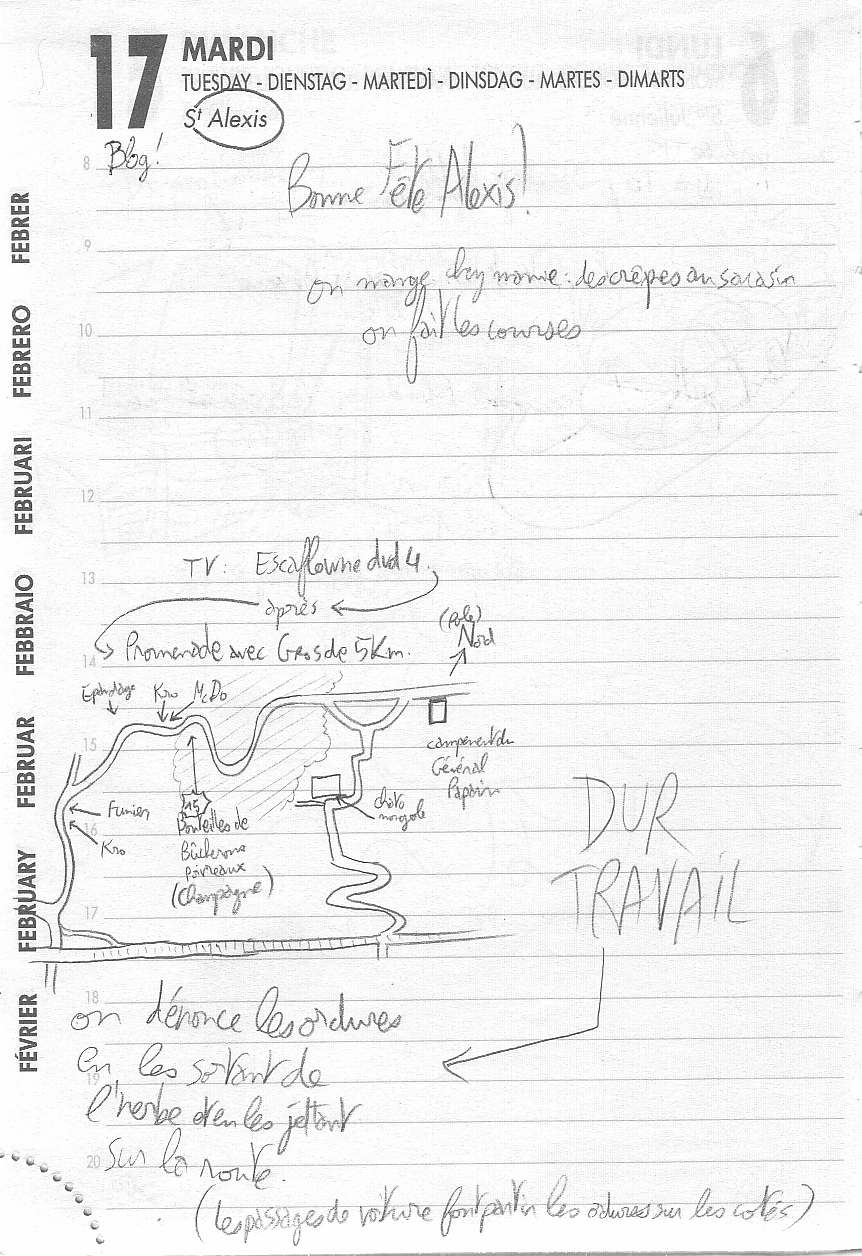 17 MARDI
TUESDAY - DIENSTAG - MARTEDÌ - DINSDAG - MARTES - DIMARTS
St Alexis
8 Blog!
Bonne Fête Alexis!
9
on mange chez mamie : des crêpes au sarasin
10
on fait les courses
11
12
TV : Escaflowne dvd 4.
13
après
(Pole)
Nord
14 Promenade avec Gros de 5 Km.
Epandage Kro McDo
15
campement du
Général
Papain
15
Fumier
16
Kro
Bouteilles de
Bûcherons
Poivreaux
(Champagne)
chato
mongole
DUR
TRAVAIL
17
18
on dénonce les ordures
en les sortant de
19
l'herbe et en les jettant
20 sur la route.
(les passages de voiture font partir les ordures sur les cotés)
FÉVRIER FEBRUARY FEBRUAR FEBBRAIO FEBRUARI FEBRERO FEBRER